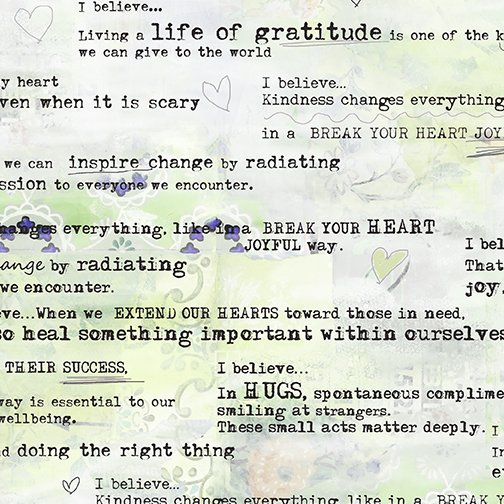 I believe...
Living a life of gratitude is one of the k
we can give to the world
y heart
ven when it is scary
I believe...
Kindness changes everything
in a BREAK YOUR HEART JOY
we can inspire change by radiating
ssion to everyone we encounter.
hanges everything, like in a BREAK YOUR HEART
JOYFUL way.
ange by radiating
we encounter.
I bel
That
joy.
eve...When we EXTEND OUR HEARTS toward those in need,
so heal something important within ourselves
THEIR SUCCESS,
I believe...
In HUGS, spontaneous complime
smiling at strangers.
These small acts matter deeply.
way is essential to our
wellbeing.
d doing the right thing
I
In
e
I believe...
Kindness changes everything like in a BREAK Y